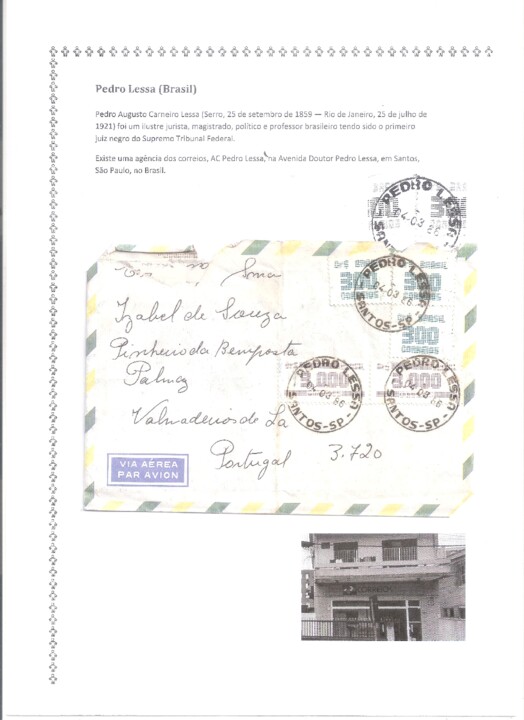 Pedro Lessa (Brasil)
Pedro Augusto Carneiro Lessa (Serro, 25 de setembro de 1859 — Rio de Janeiro, 25 de julho de
1921) foi um ilustre jurista, magistrado, político e professor brasileiro tendo sido o primeiro
juiz negro do Supremo Tribunal Federal.
Existe uma agência dos correios, AC Pedro Lessa, na Avenida Doutor Pedro Lessa, em Santos,
São Paulo, no Brasil.
PEDRO LESSA
04-03 86
Cr$ BRASIL
300
CORREIOS
BRASIL
300
CORREIOS
PEDRO LESSA
04-03 86
SANTOS-SP
BRASIL
300
CORREIOS
Izabel de Souza
Pinheiro da Bemposta
Palmaz
3.000
3.000
PEDRO LESSA
04-03 86
SANTOS-SP
PEDRO LESSA
04-03 86
SANTOS-SP
Valmadeiros de La
Portugal 3.720
VIA AÉREA
PAR AVION